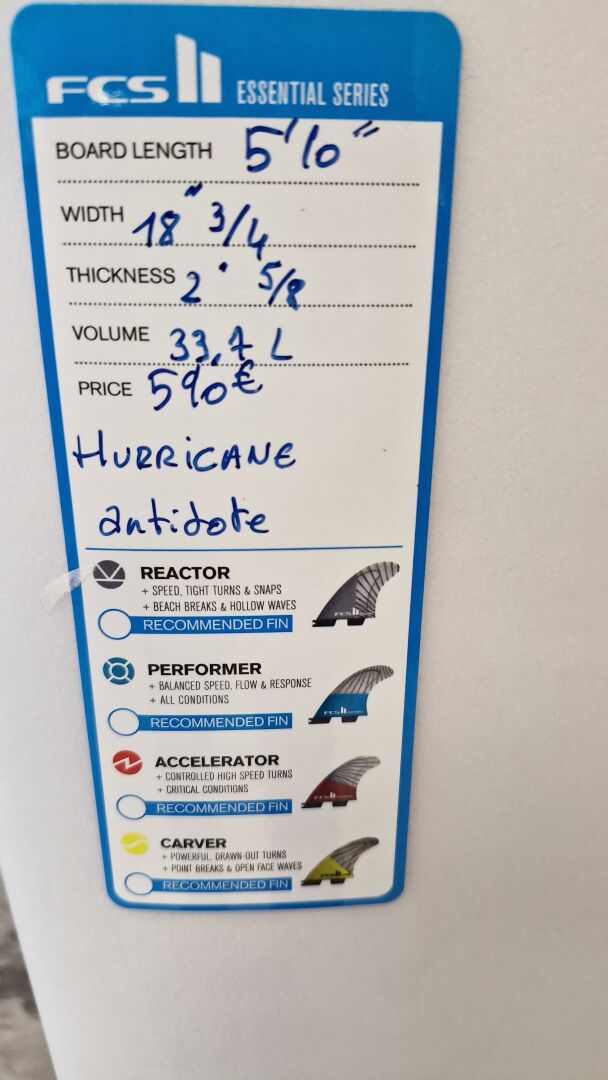 FCS II ESSENTIAL SERIES
BOARD LENGTH 5'10"
WIDTH 18" 3/4
THICKNESS 2" 5/8
VOLUME 33,7 L
PRICE 590€
HURRICANE
antidote
REACTOR
+ SPEED, TIGHT TURNS & SNAPS
+ BEACH BREAKS & HOLLOW WAVES
RECOMMENDED FIN
FCS II
PERFORMER
+ BALANCED SPEED, FLOW & RESPONSE
+ ALL CONDITIONS
RECOMMENDED FIN
FCS II
ACCELERATOR
+ CONTROLLED HIGH SPEED TURNS
+ CRITICAL CONDITIONS
RECOMMENDED FIN
FCS II
CARVER
+ POWERFUL, DRAWN-OUT TURNS
+ POINT BREAKS & OPEN FACE WAVES
RECOMMENDED FIN